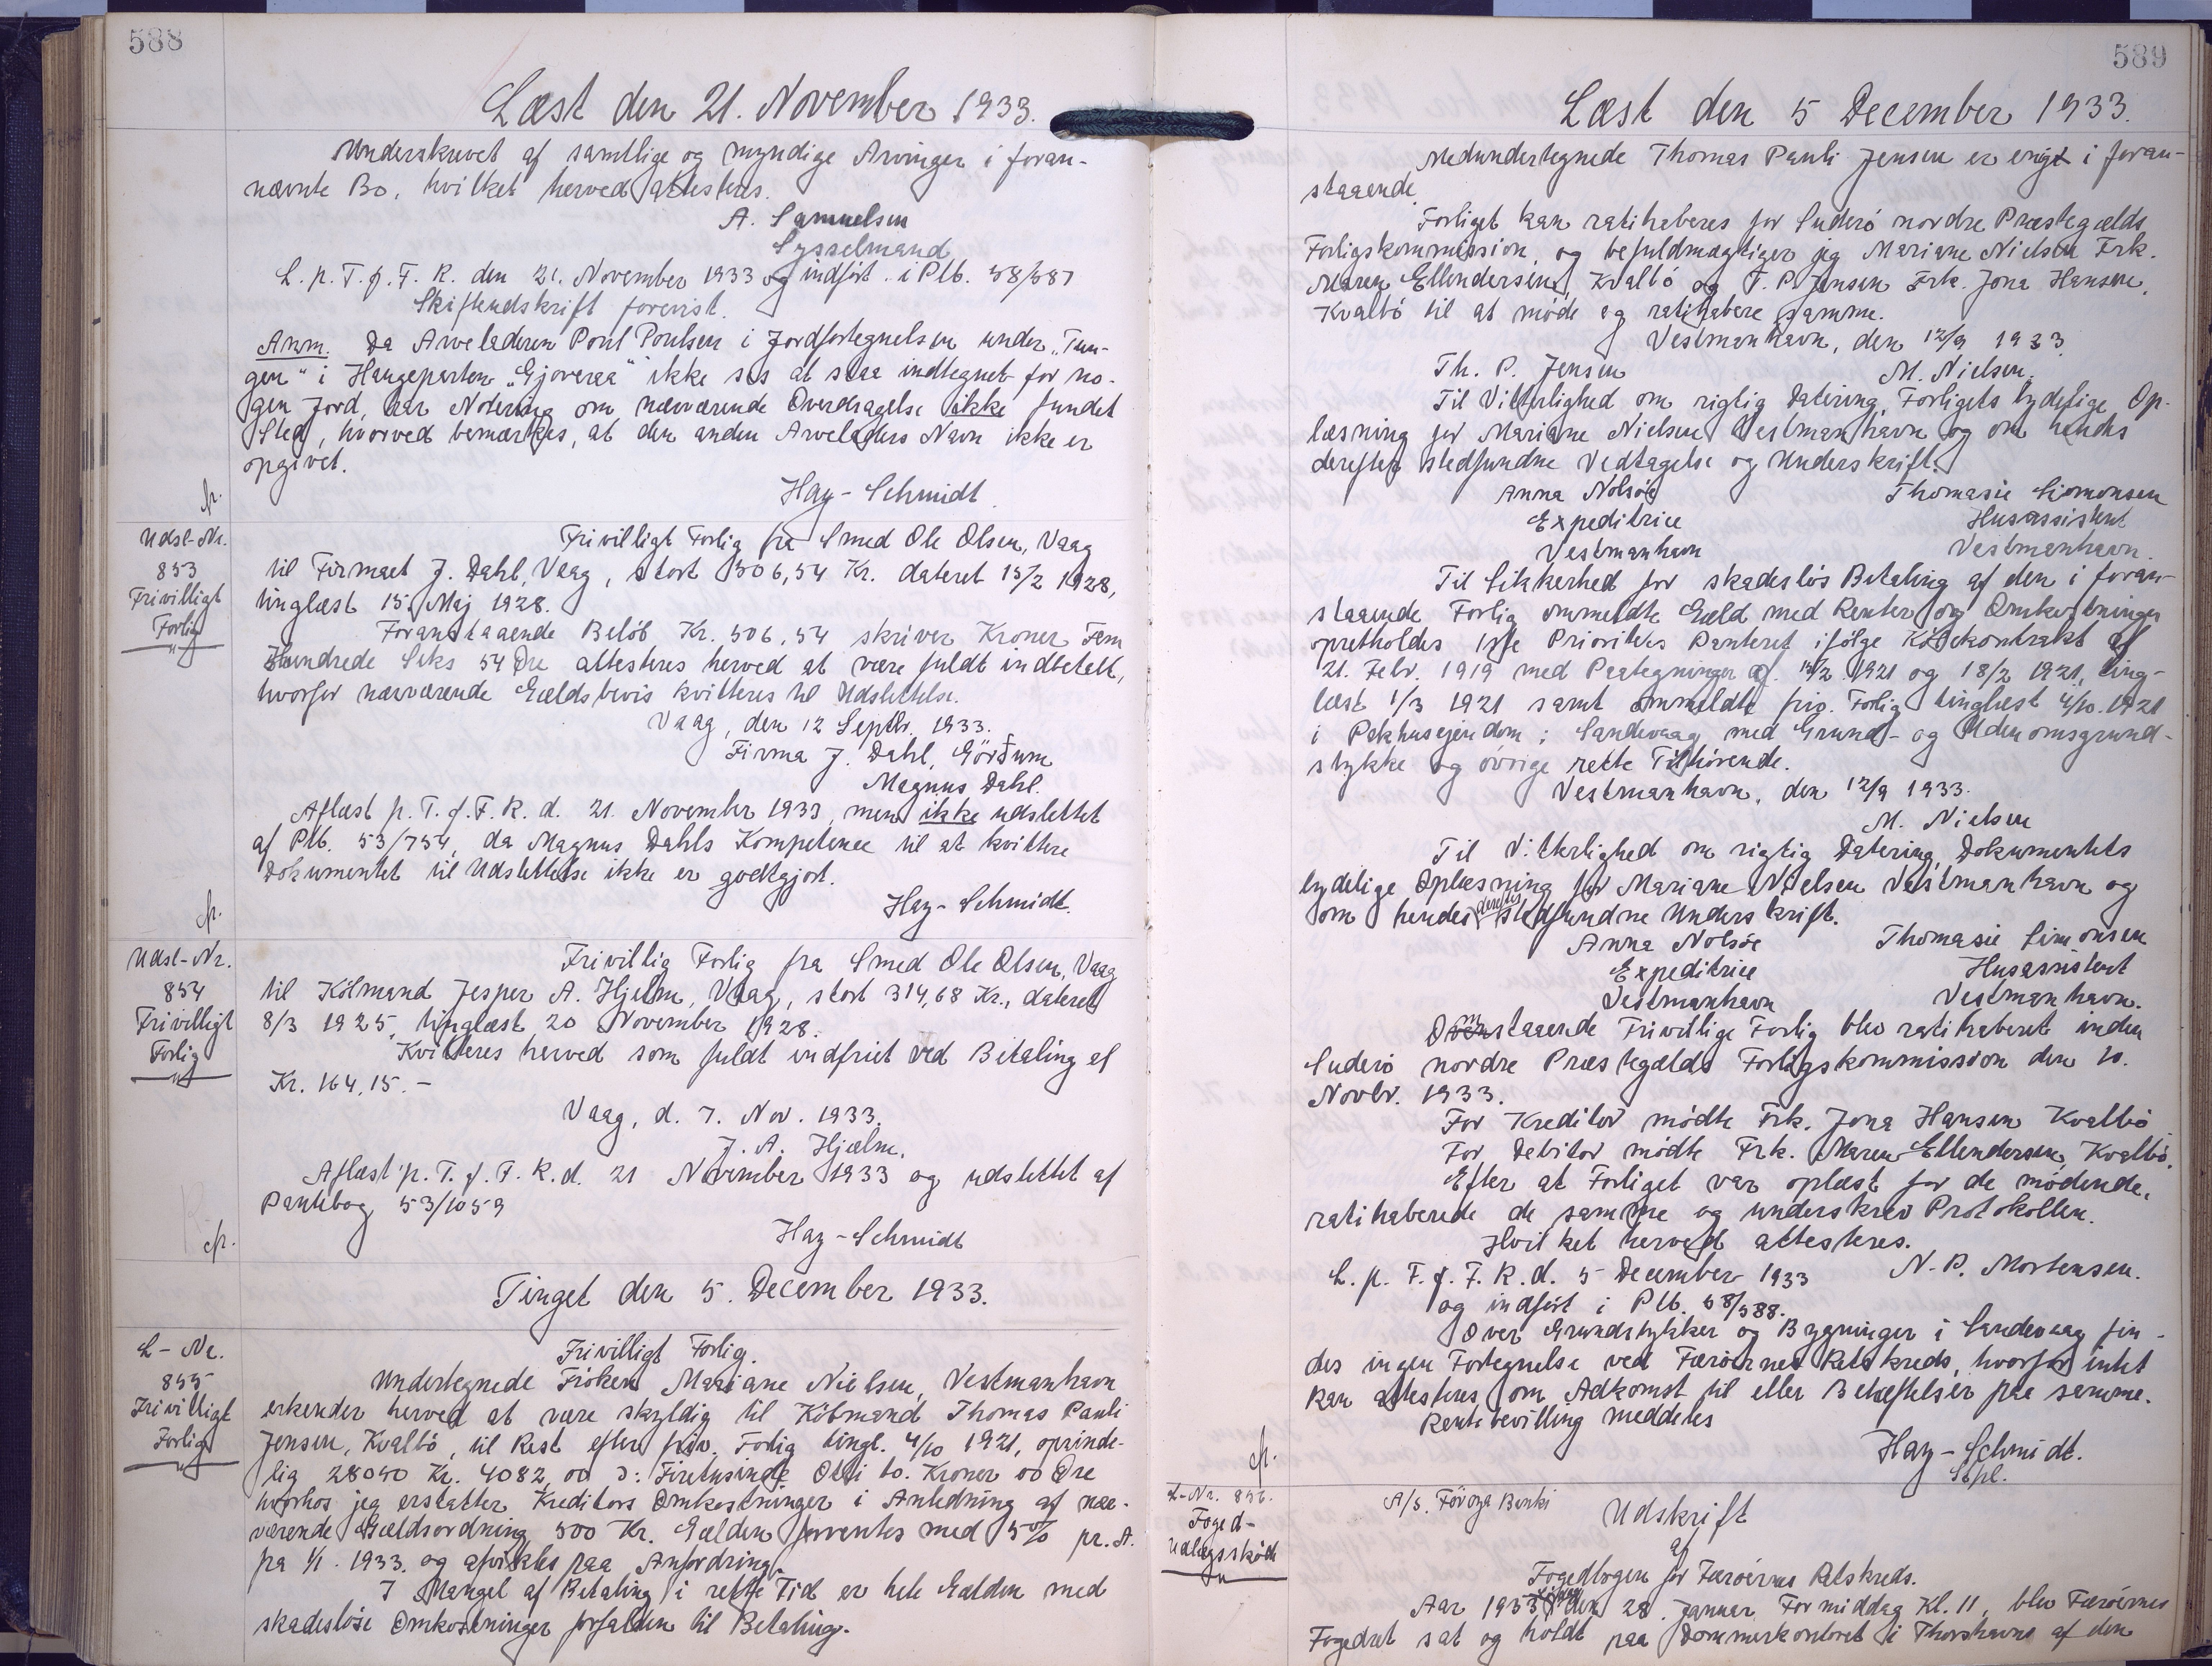 588
Læst den 21. November 1933.
Underskrevet af samtlige og myndige Arvinger i foran-
nævnte Bo, hvilket herved attesteres.
A. Samuelsen
Sysselmand
L. p. T. f. F. R. den 21. November 1933 og indført i Plb. 58/587
Skifteudskrift forevist.
Anm. Da Arveladeren Poul Poulsen i Jordfortegnelsen under „Tun-
gen" i Haugeparten „Gjoveraa" ikke ses at staa indtegnet for no-
gen Jord, har Notering om nærværende Overdragelse ikke fundet
Sted, hvorved bemærkes, at den anden Arveladers Navn ikke er
opgivet.
Hay-Schmidt
Udsl-Nr.
853
Frivilligt
Forlig
Frivilligt Forlig fra Smed Ole Olsen, Vaag
til Firmaet J. Dahl, Vaag, stort 506,54 Kr. dateret 15/2 1928,
tinglæst 15. Maj 1928.
Foranstaaende Beløb Kr. 506,54 skriver Kroner Fem
Hundrede Seks 54 Øre attesteres herved at være fuldt indbetalt,
hvorfor nærværende Gældsbevis kvitteres til Udslettelse.
Vaag, den 12 Septbr. 1933.
Firma J. Dahl, Görðum
Magnus Dahl.
Aflæst p. T. f. F. R. d. 21. November 1933, men ikke udslettet
af Plb. 53/754, da Magnus Dahls Kompetence til at kvittere
Dokumentet til Udslettelse ikke er godtgjort.
Hay-Schmidt.
Udsl-Nr.
854
Frivilligt
Forlig
Frivillig Forlig fra Smed Ole Olsen, Vaag
til Kölmand Jesper A. Hjelm, Vaag, stort 314,68 Kr., dateret
8/3 1925, tinglæst 20 November 1928.
Kvitteres herved som fuldt indfriet ved Betaling af
Kr. 164,15.-
Vaag, d. 7. Nov. 1933.
J. A. Hjælm.
Aflæst p. T. f. F. R. d. 21 November 1933 og udslettet af
Pantebog 53/1059
Hay-Schmidt
Tinget den 5. December 1933.
L-Nr.
855
Frivilligt
Forlig
Frivilligt Forlig.
Undertegnede Fröken Mariane Nielsen, Vestmanhavn
erkender herved at være skyldig til Köbmand Thomas Pauli
Jensen, Kvalbö, til Rest efter friv. Forlig tingl. 4/10 1921, oprinde-
lig 28050 Kr. 4082,00 ɔ: Firetusinde Otti to. Kroner 00 Øre
hvorhos jeg erstatter Kreditors Omkostninger i Anledning af nær-
værende Gældsordning 500 Kr. Gælden forrentes med 5% pr. A.
fra 1/1 1933 og afvikles paa Anfordring.
I Mangel af Betaling i rette Tid er hele Gælden med
skadeslöse Omkostninger forfalden til Betaling.
589
Læst den 5 December 1933.
Medundertegnede Thomas Pauli Jensen er enigt i foran-
staaende.
Forliget kan ratihaberes for Suderö nordre Præstegælds
Forligskommission, og befuldmægtiger jeg Mariane Nielsen Frk.
Maren Ellendersen, Kvalbö og T. P. Jensen Frk. Jona Hansen,
Kvalbö til at møde og ratihabere samme.
Vestmanhavn, den 12/9 1933.
Th. P. Jensen M. Nielsen.
Til Vitterlighed om rigtig Datering, Forligets tydelige Op-
læsning for Mariane Nielsen Vestmanhavn og om hendes
derefter stedfundne Vedtagelse og Underskrift.
Anna Nolsöe Thomasie Simonsen
Expeditrice Husassistent
Vestmanhavn Vestmanhavn.
Til Sikkerhed for skadeslös Betaling af den i foran-
staaende Forlig ommeldte Gæld med Renter og Omkostninger
opretholdes 1ste Prioritets Panteret ifölge Köbekontrakt af
21. Febr. 1919 med Paategninger af 15/2 1921 og 18/2 1921, ting-
læst 1/3 1921 samt ommeldte friv. Forlig tinglæst 4/10 1921
i Pakhusejendom i Sandevaag med Grund- og Udenomsgrund-
stykke og övrige rette Tilhörende.
Vestmanhavn, den 12/9 1933.
M. Nielsen
Til Vitterlighed om rigtig Datering, Dokumentets
tydelige Oplæsning for Mariane Nielsen Vestmanhavn og
om hendes derefter stedfundne Underskrift.
Anna Nolsöe Thomasie Simonsen
Expeditrice Husassistent
Vestmanhavn Vestmanhavn.
Omstaaende Frivillige Forlig blev ratihaberet inden
Suderö nordre Præstegælds Forligskommission den 10.
Novbr. 1933.
For Kreditor mödte Frk. Jona Hansen Kvalbö
For Debitor mödte Frk. Maren Ellendersen, Kvalbö.
Efter at Forliget var oplæst for de mödende,
ratihaberede de samme og underskrev Protokollen.
Hvilket herved attesteres.
N. P. Mortensen.
L. p. T. f. F. R. d. 5 December 1933
og indfört i Plb. 58/588.
Over Grundstykker og Bygninger i Sandevaag fin-
des ingen Fortegnelse ved Færöernes Retskreds, hvorfor intet
kan attesteres om Adkomst til eller Behæftelser paa samme.
Rentebevilling meddeles
Hay-Schmidt.
Stpl.
L-Nr. 856.
Foged-
Udlægsskøde
A/S. Föroya Banki
Udskrift
af
Fogedbogen for Færöernes Retskreds.
Aar 1933 den 28. Januar Formiddag Kl. 11, blev Færöernes
Fogedret sat og holdt paa Dommerkontoret i Thorshavn af den